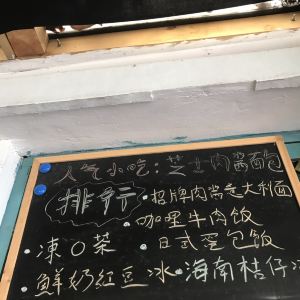 人气小吃:芝士肉酱面包
排行
·招牌肉酱意大利面
咖哩牛肉饭
·凍O茶
·日式蛋包飯
·鮮奶紅豆冰
·海南桔仔冰